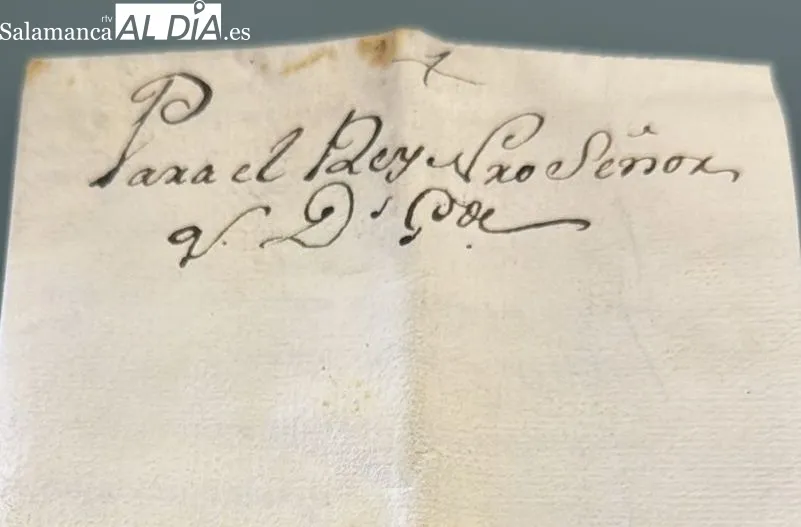 Salamanca rtv AL DÍA.es
Para el Rey Nro Señor
q. Ds. Gde.